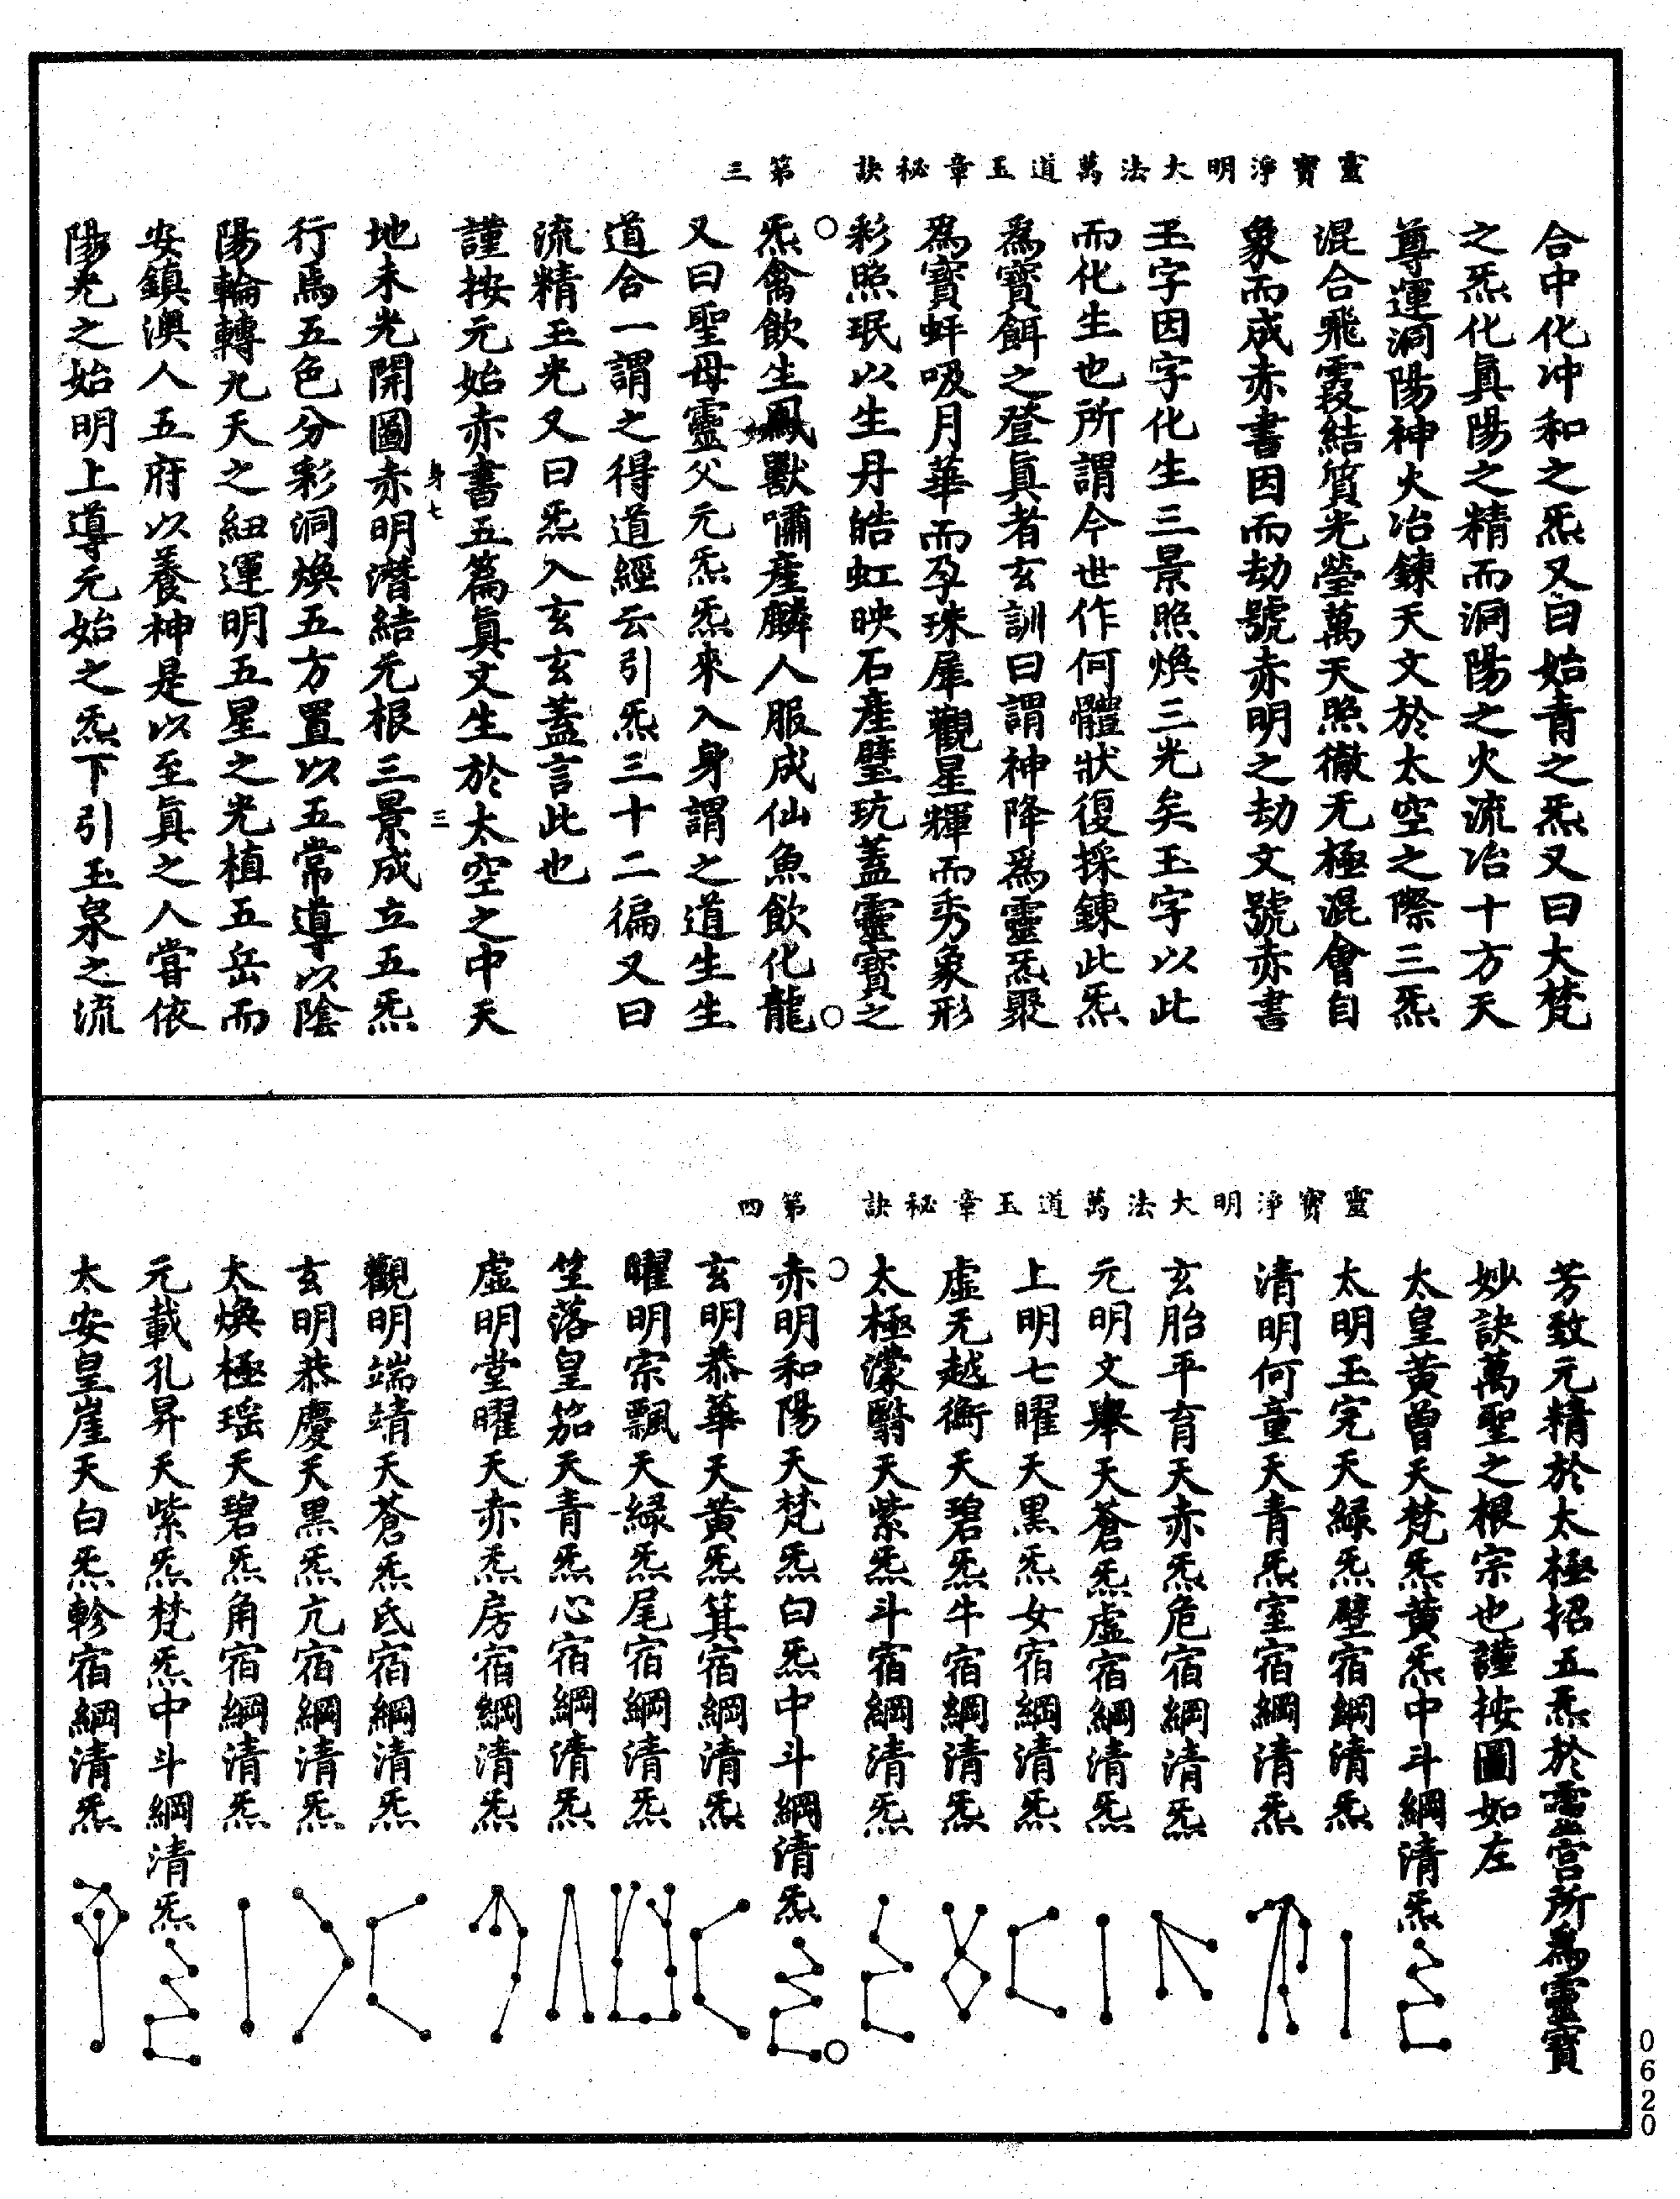 靈寶淨明大法萬道玉章秘訣　第三
合中化冲和之炁又曰始青之炁又曰大梵
之炁化真陽之精而洞陽之火流冶十方天
尊運洞陽神火冶鍊天文於太空之際三炁
混合飛霞結質光瑩萬天照徹无極混會自
象而成赤書因而劫號赤明之劫文號赤書
玉字因字化生三景照煥三光矣玉字以此
而化生也所謂今世作何體狀復採鍊此炁
為寶餌之登真者玄訓曰謂神降為靈炁聚
為寶蚌吸月華而孕珠犀觀星輝而秀象形
彩照珉以生丹皓虹映石產璧玩蓋靈寶之
炁禽飲生鳳獸嘯產麟人服成仙魚飲化龍
又曰聖母靈父元炁炁來入身謂之道生生
道合一謂之得道經云引炁三十二徧又曰
流精玉光又曰炁入玄玄蓋言此也
謹按元始赤書五篇真文生於太空之中天
身七　三
地未光開圖赤明潛結元根三景成立五炁
行焉五色分彩洞煥五方置以五常導以陰
陽輪轉九天之紐運明五星之光植五岳而
安鎮澳人五府以養神是以至真之人嘗依
陽光之始明上導元始之炁下引玉泉之流
靈寶淨明大法萬道玉章秘訣　第四
芳致元精於太極招五炁於靈宮所為靈寶
妙訣萬聖之根宗也謹按圖如左
太皇黃曾天梵炁黃炁中斗綱清炁
太明玉完天綠炁壁宿綱清炁
清明何童天青炁室宿綱清炁
玄胎平育天赤炁危宿綱清炁
元明文舉天蒼炁虛宿綱清炁
上明七曜天黑炁女宿綱清炁
虛无越衡天碧炁牛宿綱清炁
太極濛翳天紫炁斗宿綱清炁
赤明和陽天梵炁白炁中斗綱清炁
玄明恭華天黃炁箕宿綱清炁
曜明宗飄天綠炁尾宿綱清炁
竺落皇笳天青炁心宿綱清炁
虛明堂曜天赤炁房宿綱清炁
觀明端靖天蒼炁氐宿綱清炁
玄明恭慶天黑炁亢宿綱清炁
太煥極瑤天碧炁角宿綱清炁
元載孔昇天紫炁梵炁中斗綱清炁
太安皇崖天白炁軫宿綱清炁
0620